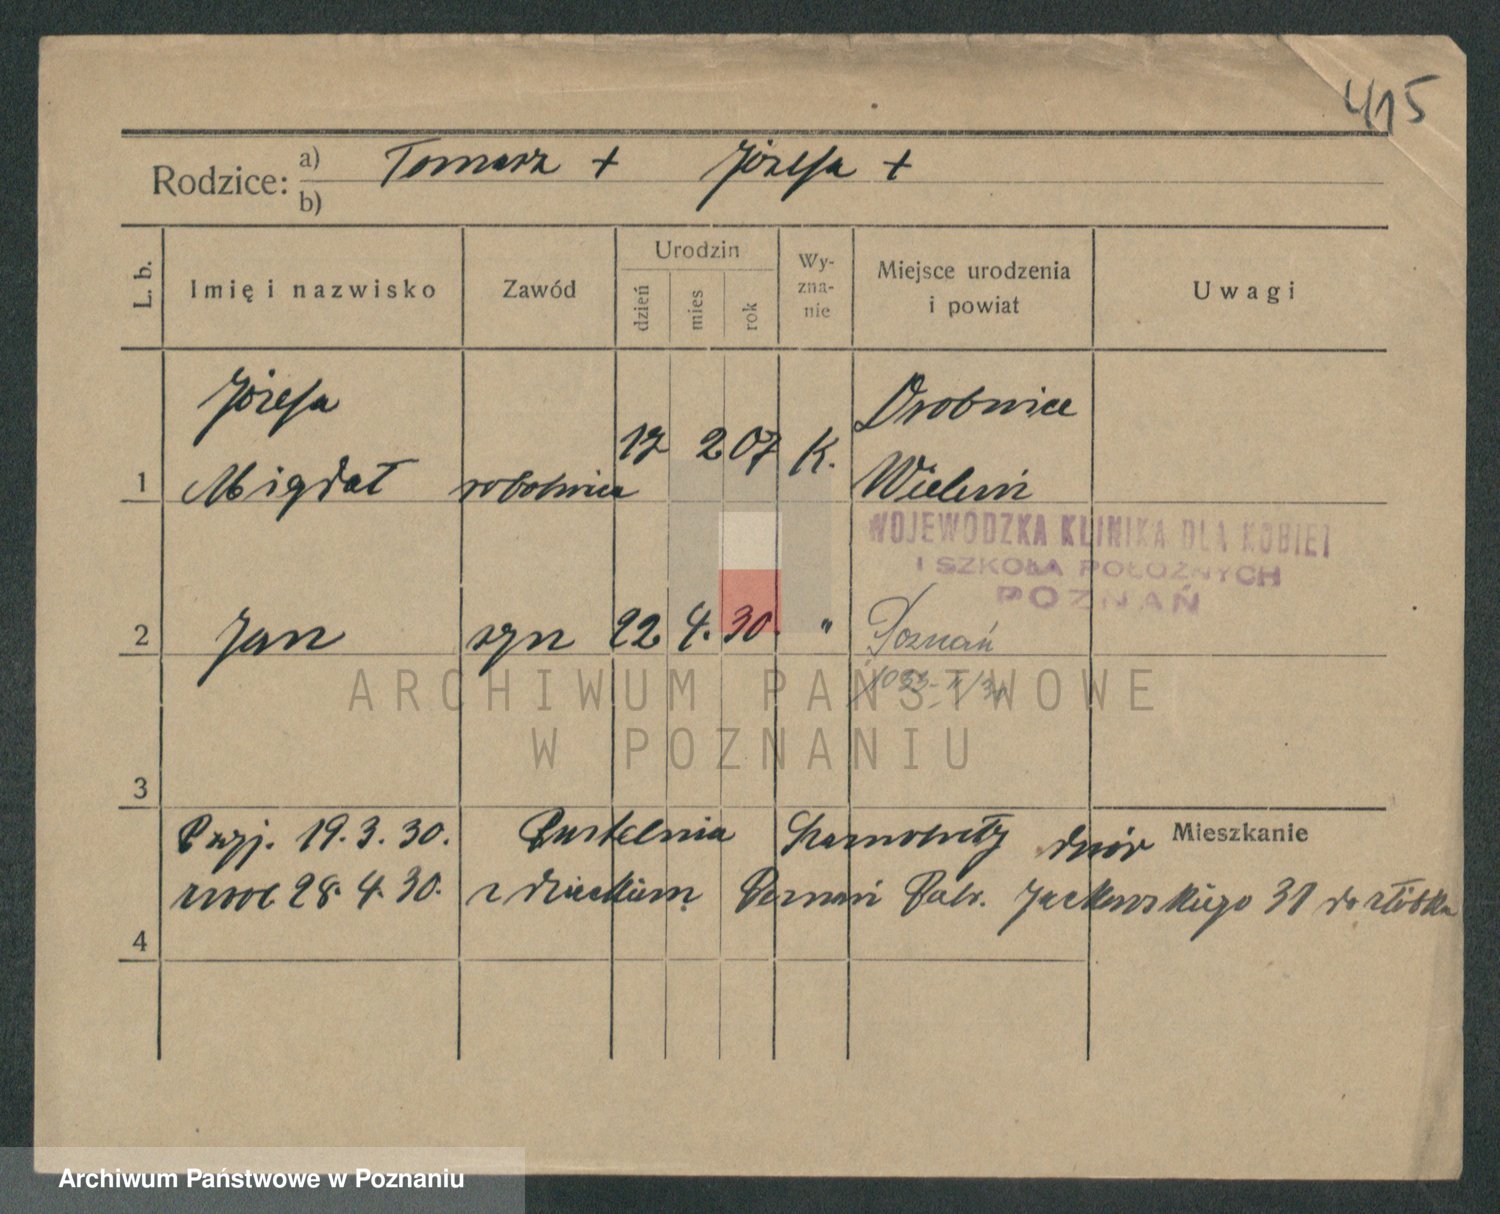 415
Rodzice: a) Tomasz + Józefa +
b)
L. b. Imię i nazwisko Zawód Urodzin dzień mies rok Wy-zna-nie Miejsce urodzenia i powiat Uwagi
Józefa Drobnice
1 Migdał robotnica 17 2 07 K. Wieluń
WOJEWÓDZKA KLINIKA DLA KOBIET
I SZKOŁA POŁOŻNYCH
POZNAŃ
2 Jan syn 22 4. 30. " Poznań
ARCHIWUM PAŃSTWOWE
W POZNANIU
3
Przyj. 19. 3. 30. Pustelnia Szamotuły dwór Mieszkanie
28. 4. 30. z dzieckiem Poznań Jackowskiego 31 do żłóbka
4
Archiwum Państwowe w Poznaniu